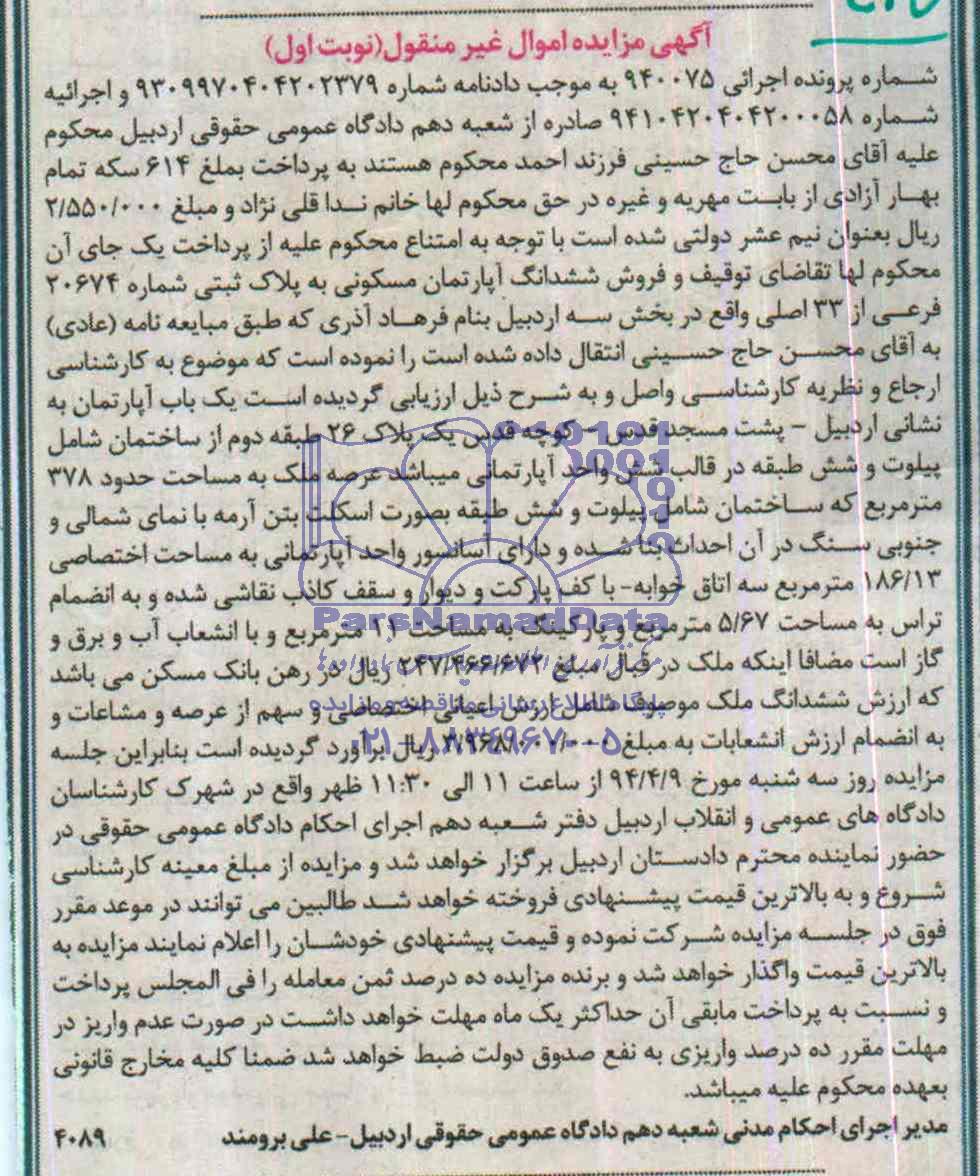 آگهی مزایده اموال غیر منقول(نوبت اول)
شماره پرونده اجرائی ۹۴۰۰۷۵ به موجب دادنامه شماره ۹۳۰۹۹۷۰۴۰۴۲۰۲۳۷۹ و اجرائیه
شماره ۹۴۱۰۴۲۰۴۰۴۲۰۰۰۵۸ صادره از شعبه دهم دادگاه عمومی حقوقی اردبیل محکوم
علیه آقای محسن حاج حسینی فرزند احمد محکوم هستند به پرداخت بملغ ۶۱۴ سکه تمام
بهار آزادی از بابت مهریه و غیره در حق محکوم لها خانم ندا قلی نژاد و مبلغ ۲/۵۵۰/۰۰۰
ریال بعنوان نیم عشر دولتی شده است با توجه به امتناع محکوم علیه از پرداخت یک جای آن
محکوم لها تقاضای توقیف و فروش ششدانگ آپارتمان مسکونی به پلاک ثبتی شماره ۲۰۶۷۴
فرعی از ۳۳ اصلی واقع در بخش سه اردبیل بنام فرهاد آذری که طبق مبایعه نامه (عادی)
به آقای محسن حاج حسینی انتقال داده شده است را نموده است که موضوع به کارشناسی
ارجاع و نظریه کارشناسی واصل و به شرح ذیل ارزیابی گردیده است یک باب آپارتمان به
نشانی اردبیل – پشت مسجد قدس – کوچه قدس یک پلاک ۲۶ طبقه دوم از ساختمان شامل
پیلوت و شش طبقه در قالب شش واحد آپارتمانی میباشد عرصه ملک به مساحت حدود ۳۷۸
مترمربع که ساختمان شامل پیلوت و شش طبقه بصورت اسکلت بتن آرمه با نمای شمالی و
جنوبی سنگ در آن احداث بنا شده و دارای آسانسور واحد آپارتمانی به مساحت اختصاصی
۱۸۶/۱۳ مترمربع سه اتاق خوابه- با کف پارکت و دیوار و سقف کاذب نقاشی شده و به انضمام
ParsNamadData
تراس به مساحت ۵/۶۷ مترمربع و پارکینگ به مساحت مترمربع و با انشعاب آب و برق و
گاز است مضافا اینکه ملک در قبال مبلغ ۲۴۷/۴۶۶/۶۷۲ ریال در رهن بانک مسکن می باشد
پایگاه اطلاع رسانی مناقصه و مزایده
که ارزش ششدانگ ملک موصوف شامل ارزش اعیانی اختصاصی و سهم از عرصه و مشاعات و
۰۲۱-۸۸۳۴۹۶۷۰-۵
به انضمام ارزش انشعابات به مبلغ ریال برآورد گردیده است بنابراین جلسه
مزایده روز سه شنبه مورخ ۹۴/۴/۹ از ساعت ۱۱ الی ۱۱:۳۰ ظهر واقع در شهرک کارشناسان
دادگاه های عمومی و انقلاب اردبیل دفتر شعبه دهم اجرای احکام دادگاه عمومی حقوقی در
حضور نماینده محترم دادستان اردبیل برگزار خواهد شد و مزایده از مبلغ معینه کارشناسی
شروع و به بالاترین قیمت پیشنهادی فروخته خواهد شد طالبین می توانند در موعد مقرر
فوق در جلسه مزایده شرکت نموده و قیمت پیشنهادی خودشان را اعلام نمایند مزایده به
بالاترین قیمت واگذار خواهد شد و برنده مزایده ده درصد ثمن معامله را فی المجلس پرداخت
و نسبت به پرداخت مابقی آن حداکثر یک ماه مهلت خواهد داشت در صورت عدم واریز در
مهلت مقرر ده درصد واریزی به نفع صدوق دولت ضبط خواهد شد ضمنا کلیه مخارج قانونی
بعهده محکوم علیه میباشد.
مدیر اجرای احکام مدنی شعبه دهم دادگاه عمومی حقوقی اردبیل- علی برومند ۴۰۸۹